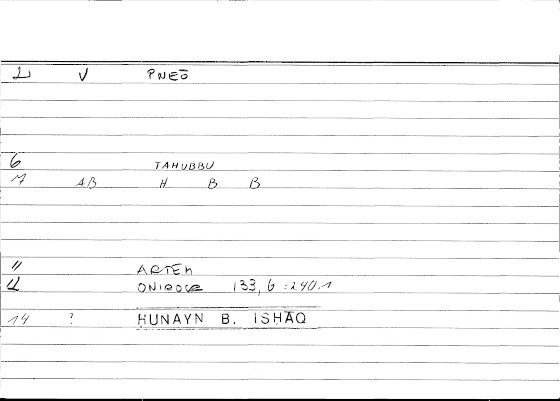 1 V PNEŌ
6 TAHUBBU
7 AB H B B
11 ARTEM
12 ONIROCR 133, 6 : 240.1
14 ? HUNAYN B. ISHAQ